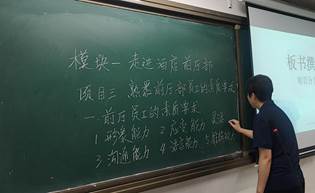 模块一 走进酒店前厅部
项目三 熟悉前厅部员工的素质要求
一、前厅员工的素质要求
1 形象能力 2 应变能力 灵活
3 沟通能力 4 语言能力 5
板书撰